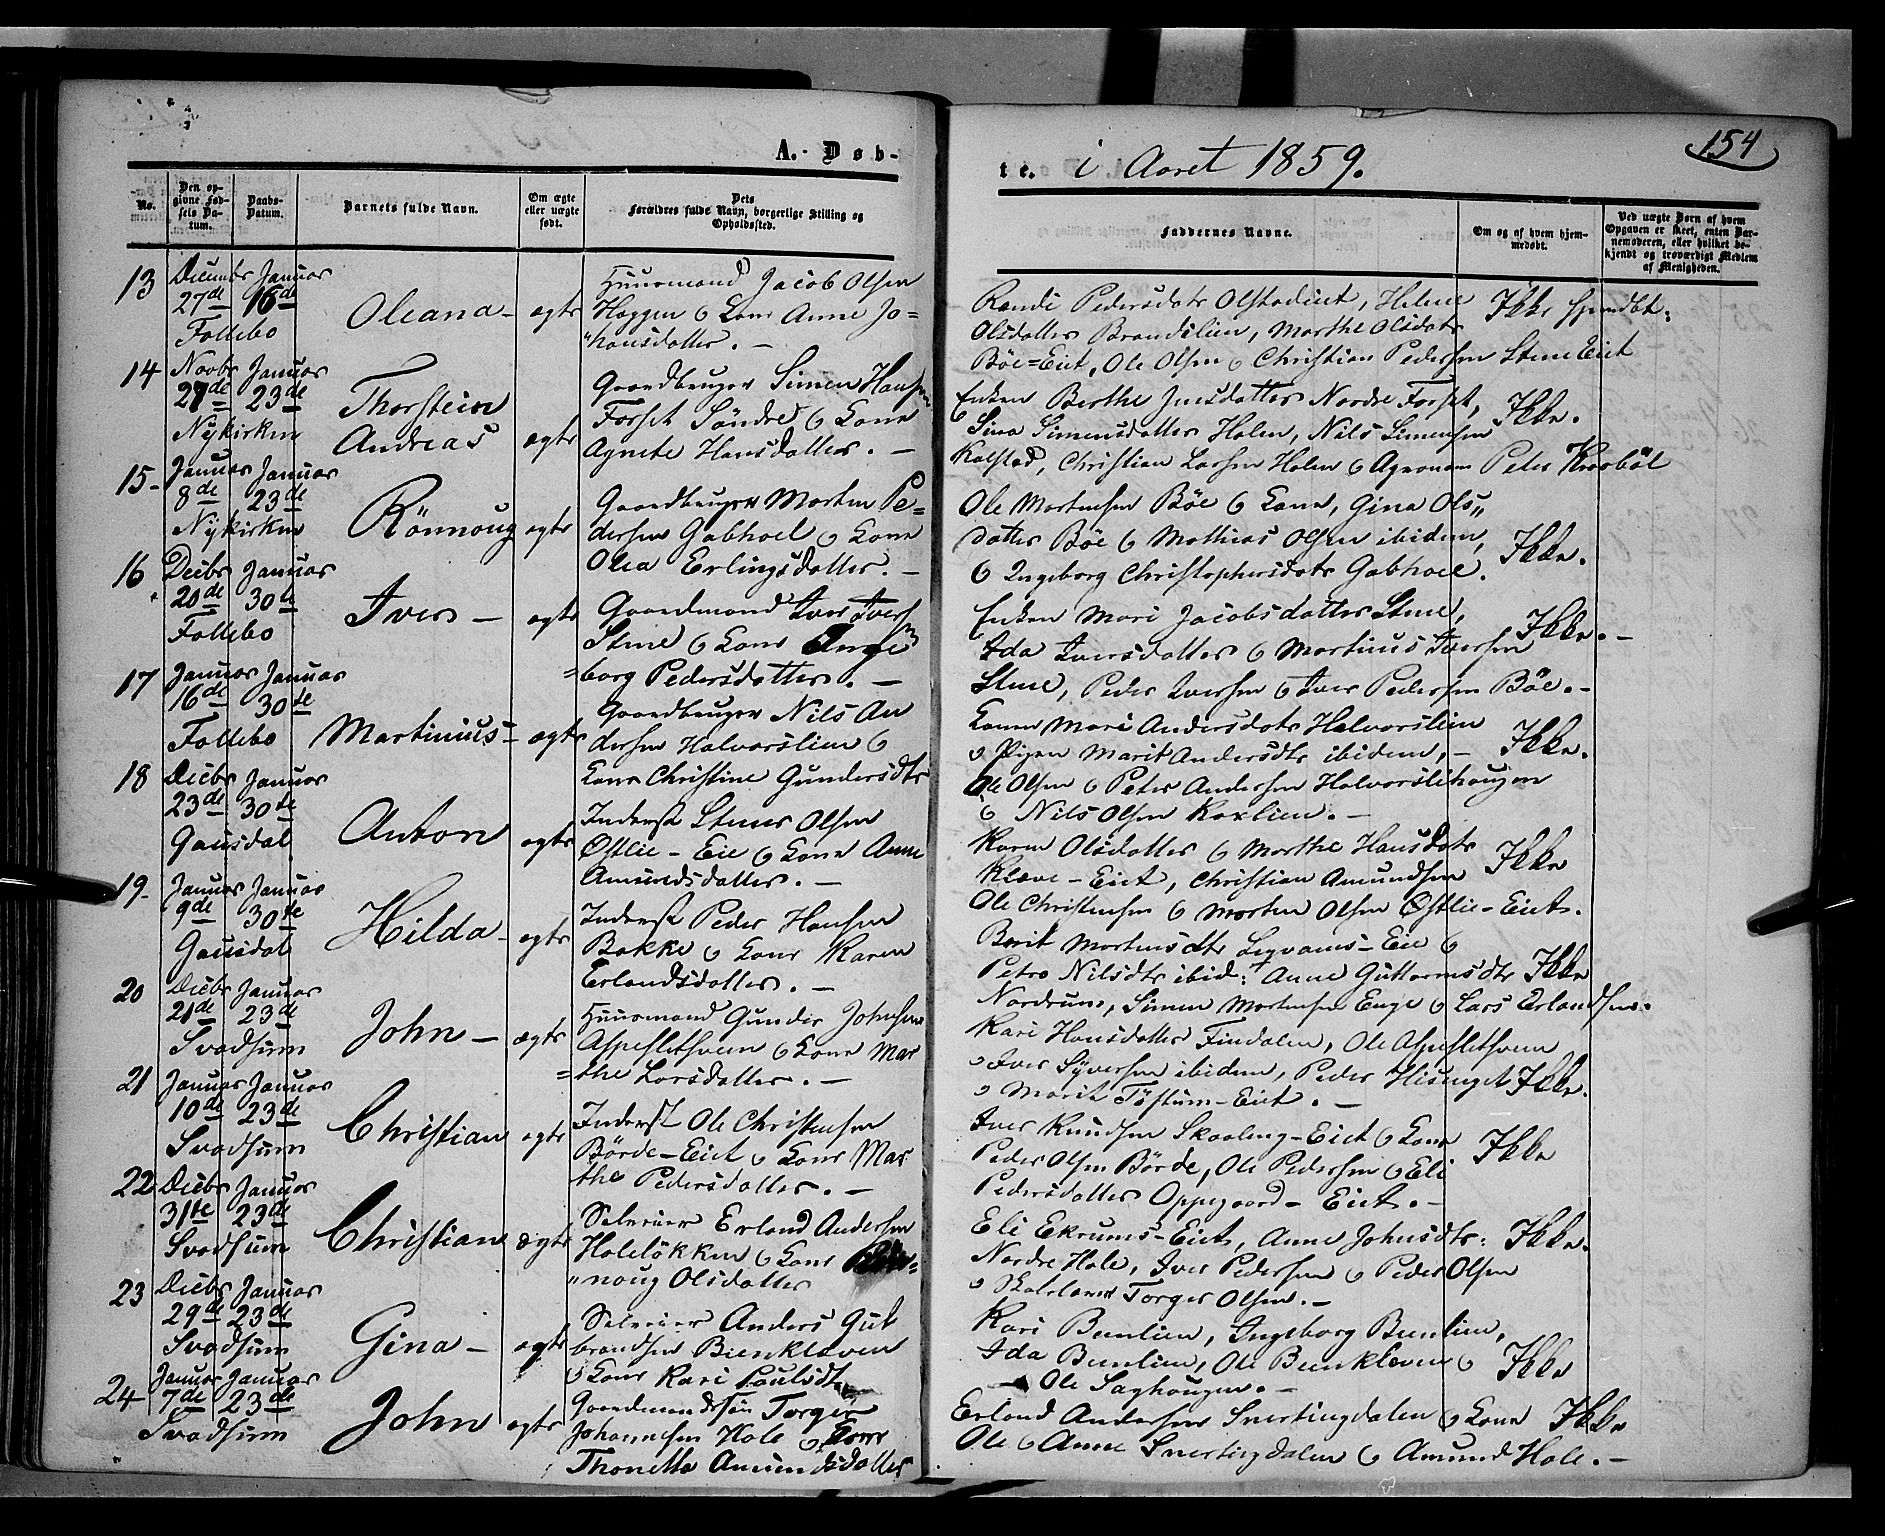 A. Døb-
te. i Aaret 1859.
154
No.
Den op-
givne Fød-
sels Da-
tum.
Daabs-
Datum.
Barnets fulde Navn.
Om ægte
eller uægte
født.
Dets
Forældres fulde Navn, borgerlige Stilling og
Opholdssted.
Faddernes Navne.
Om og af hvem hjem-
medøbt.
Ved uægte Born af hvem
Opgaven er skeet, enten Bar-
nemoderen, eller hvilket be-
kjendt og troværdigt Medlem
af Menigheden.
13 Decembr Januar
27de 16de
Follebo
Oleana - ægte
Huusmand Jacob Olsen
Haggen & Kone Anne Jo=
"hansdatter. -
Randi Pedersdatr Olstadeiet, Helene
Olsdatter Brandslien, Marthe Olsdatr
Böe=Eiet, Ole Olsen & Christian Pedersen Stene Eiet
Ikke hjemdbt:
14 Novbr Januar
27de 23de
Nykirken
Thorstein
Andreas ægte
Gaardbruger Simen Hansen
Forset Søndre & Kone
Agnete Hansdatter. -
Enken Berthe Jensdatter Nordre Forset,
Sina Simensdatter Holen, Nils Simensen
Kalstad, Christian Larsen Holen & Agronom Peter Krosböl
Ikke.
15- Januar Januar
8de 23de
Nykirken
Rönnoug ægte
Gaardbruger Morten Pe=
dersen Gabhoel & Kone
Olea Erlingsdatter. -
Ole Mortensen Böe & Kone, Gina Ols"
datter Böe & Mathias Olsen ibidem,
& Ingeborg Christophersdatr Gabhoel.
Ikke.
16 Decbr Januar
20de 30te
Follebo
Iver - ægte
Gaardmand Iver Iversen
Stene & Kone Inge
=borg Pedersdatter. -
Enken Mari Jacobsdatter Stene,
Ida Iversdatter & Martinus Iversen
Stene, Peder Iversen & Iver Pedersen Böe. -
Ikke. -
17 Januar Januar
16de 30te
Follebo
Martinius - ægte
Gaardbruger Nils An
dersen Halvorslien &
Kone Christine Gundersdtr
Konen Mari Andersdatr Halvorslien
& Pigen Marit Andersdtr ibidem, -
Ole Olsen & Peter Andersen Halvorslihaugen
& Nils Olsen Roxlien. -
Ikke.
18 Decbr Januar
23de 30te
Gausdal
Anton ægte
Inderst Stener Olsen
Østlie - Eie & Kone Anne
Amundsdatter. -
Karen Olsdatter & Marthe Hansdatr
Kleve - Eiet, Christian Amundsen
Ole Christensen & Morten Olsen Østlie - Eiet.
Ikke
19- Januar Januar
9de 30te
Gausdal
Hilda - ægte
Inderst Peder Hansen
Bakke & Kone Karen
Erlandsdatter. -
Berit Mortensdtr Eie &
Petra Nilsdtr ibid: Anne Guttormsdtr
Nordrum, Simen Mortensen Enge & Lars Erlandsen.
Ikke
20 Decbr Januar
21de 23de
Svadsum
John - ægte
Huusmand Gunder Johnsen
Aspesletsveen & Kone Mar
=the Larsdatter. -
Kari Hansdatter Findalen, Ole Aspesletsveen
& Iver Syversen ibidem, Peder Hisenget
& Marit Töftum - Eiet. -
Ikke.
21 Januar Januar
10de 23de
Svadsum
Christian ægte
Inderst Ole Christensen
Börde - Eiet & Kone Mar
the Pedersdatter. -
Iver Knudsen Skaaling - Eiet & Kone
Peder Olsen Börde, Ole Pedersen & Eli
Pedersdatter Oppegaard - Eiet. -
Ikke
22 Decbr Januar
31te 23de
Svadsum
Christian ægte
Selveier Erland Andersen
Holelökken & Kone Rön=
"noug Olsdatter
Eli Ekrums - Eiet, Anne Johnsdtr:
Nordre Hole, Iver Pedersen & Peder Olsen
& Torger Olsen. -
Ikke.
23 Decbr Januar
29de 23de
Svadsum
Gina - ægte
Selveier Anders Gut
brandsen Bienkleven
& Kone Kari Paulsdtr
Kari Benlien, Ingeborg Benlien,
Ida Benlien, Ole Benkleven &
Ole Saghaugen. -
Ikke
24 Januar Januar
7de 23de
Svadsum
John ægte
Gaardmandssön Torger
Johannesen Hole & Kone
Thonette Amundsdatter
Erland Andersen Svertingdalen & Kone
Ole & Anne Svertingdalen & Amund Hole. -
Ikke